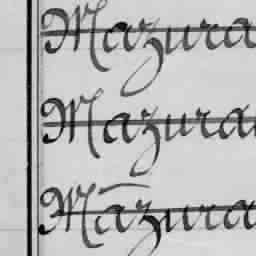 Mazura
Mazura
Mazura